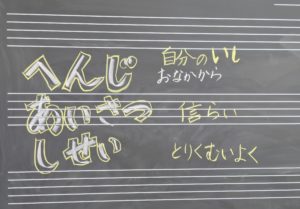 へんじ 自分のいし
おなかから
あいさつ 信らい
しせい とりくむいよく